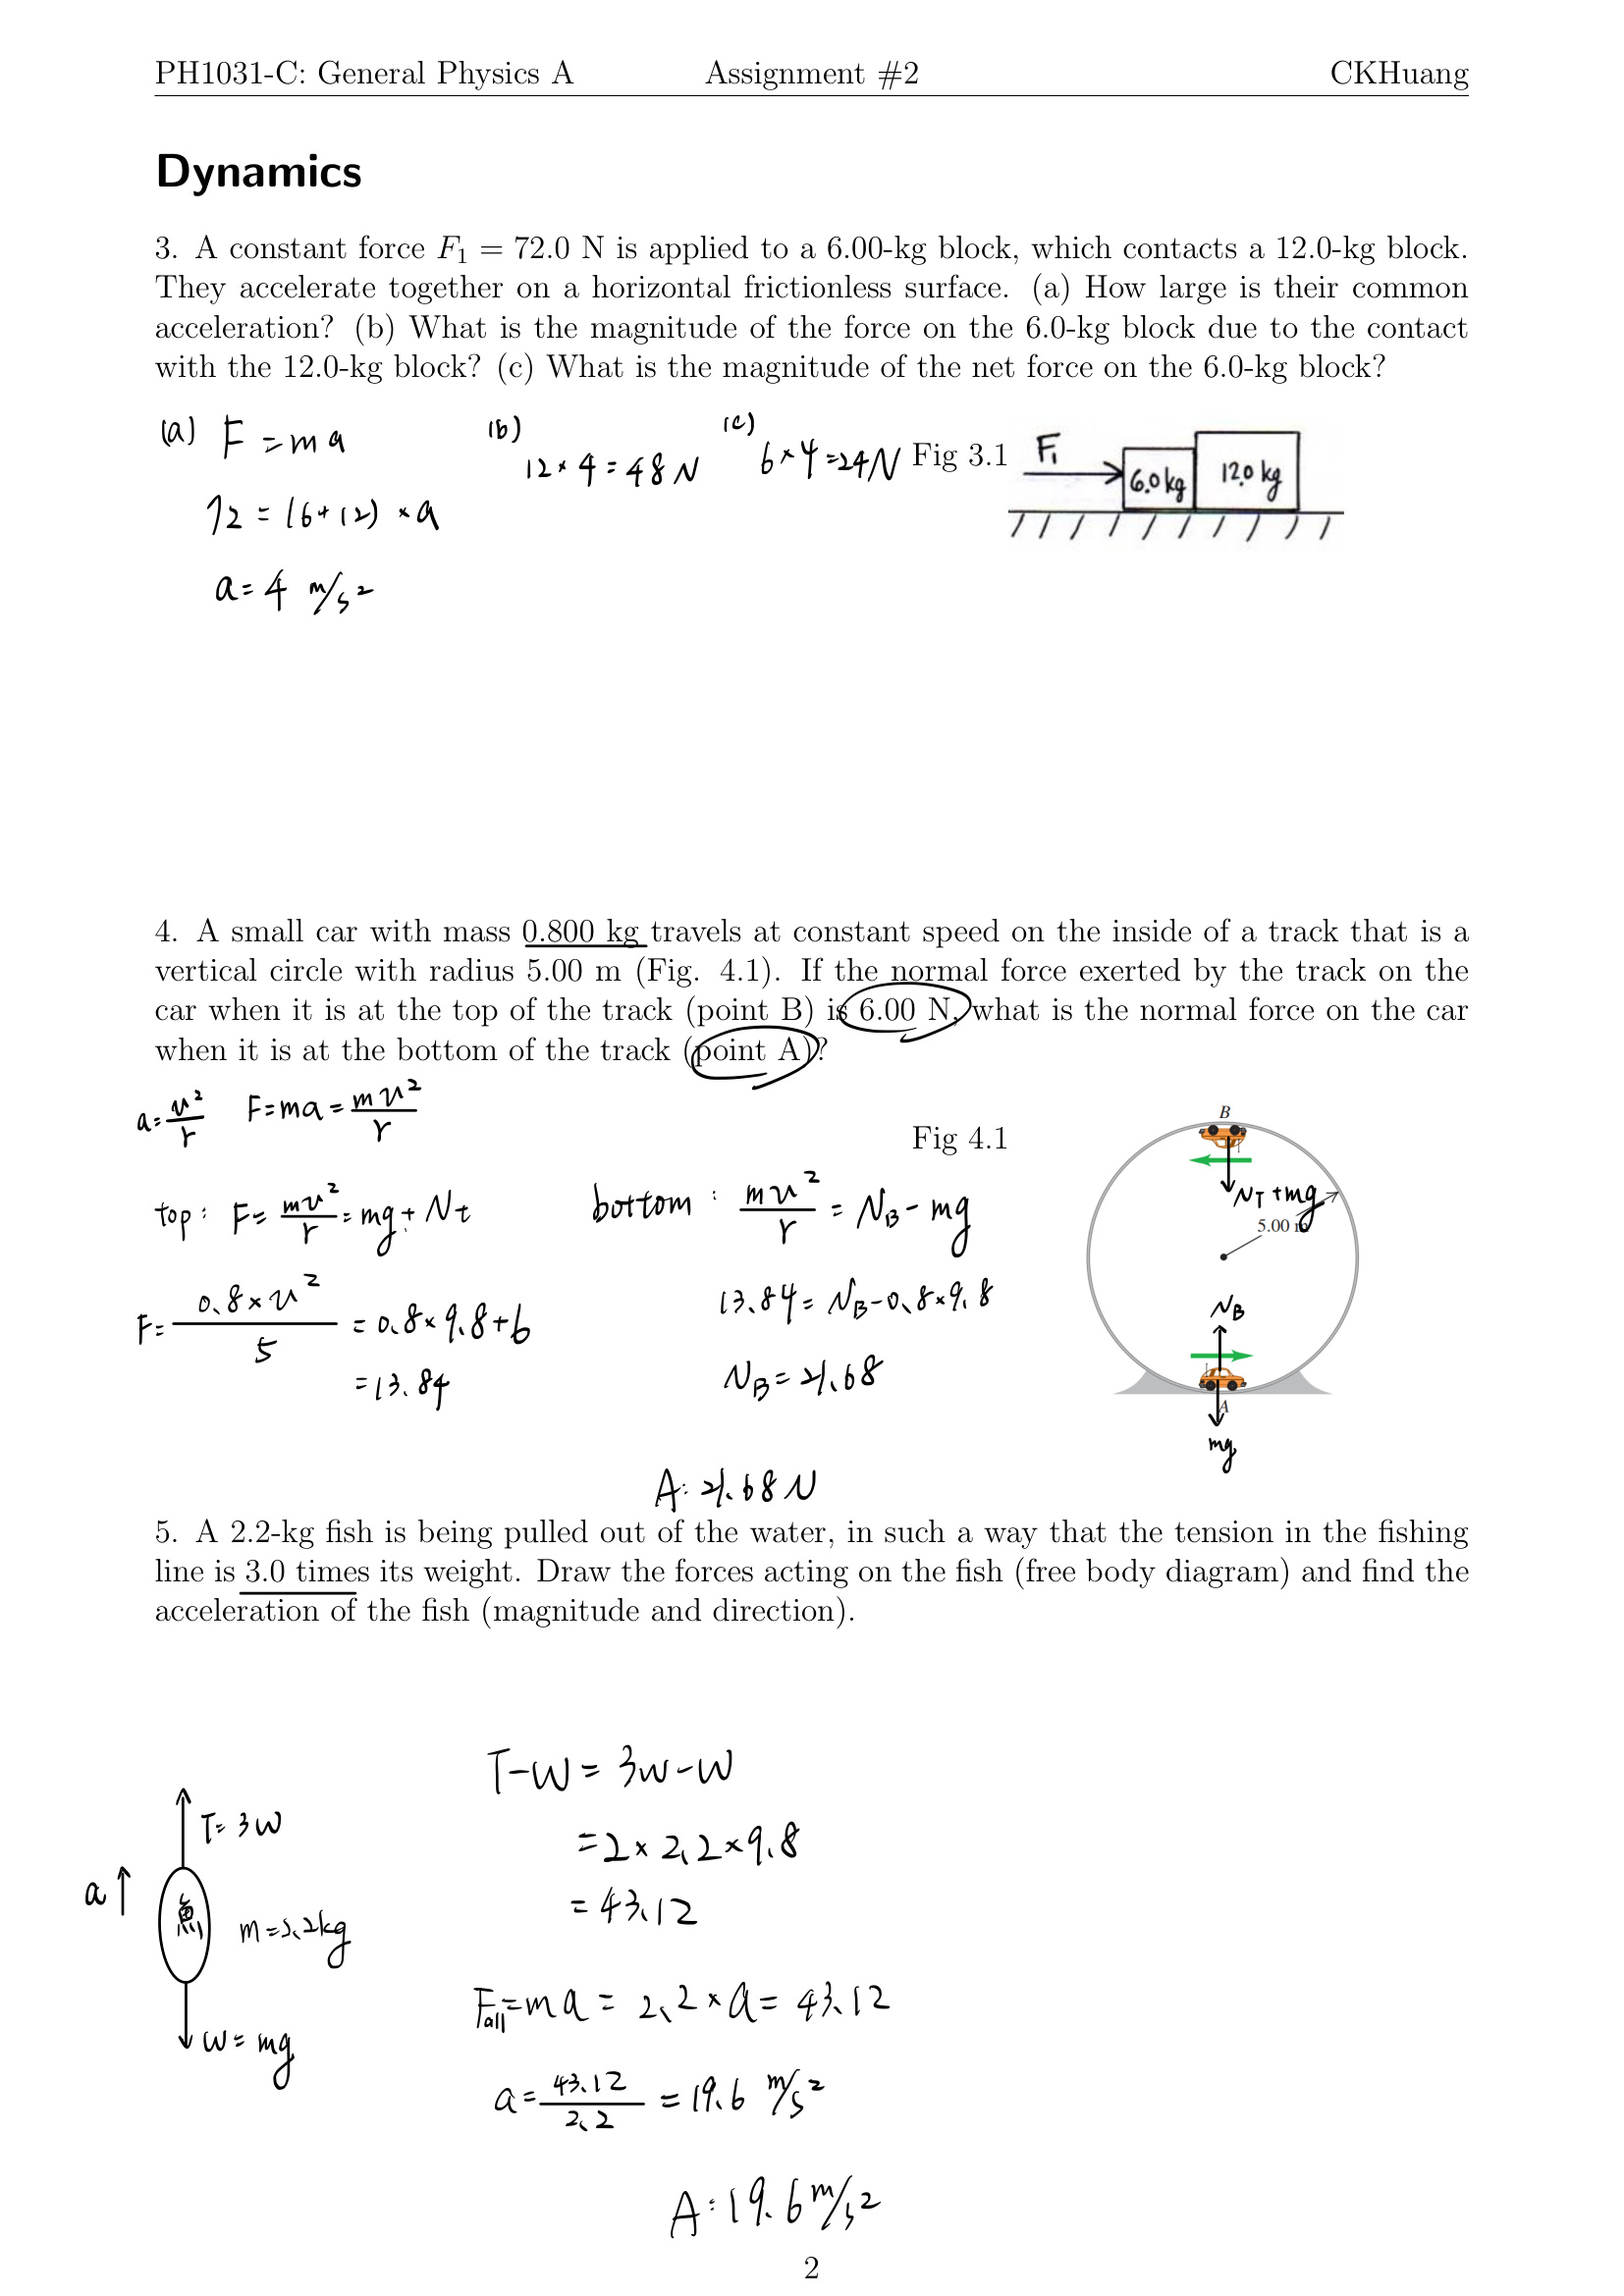 PH1031-C: General Physics A Assignment #2 CKHuang
Dynamics
3. A constant force F₁ = 72.0 N is applied to a 6.00-kg block, which contacts a 12.0-kg block.
They accelerate together on a horizontal frictionless surface. (a) How large is their common
acceleration? (b) What is the magnitude of the force on the 6.0-kg block due to the contact
with the 12.0-kg block? (c) What is the magnitude of the net force on the 6.0-kg block?
(a) F = ma
72 = (6+12) × a
a = 4 m/s²
(b)
12 × 4 = 48 N
(c)
6 × 4 = 24 N
Fig 3.1
F₁
6.0 kg
12.0 kg
4. A small car with mass 0.800 kg travels at constant speed on the inside of a track that is a
vertical circle with radius 5.00 m (Fig. 4.1). If the normal force exerted by the track on the
car when it is at the top of the track (point B) is 6.00 N, what is the normal force on the car
when it is at the bottom of the track (point A)?
a = v²/r F = ma = mv²/r
top: F = mv²/r = mg + Nt
F = 0.8 × v²/5 = 0.8 × 9.8 + 6
= 13.84
bottom: mv²/r = NB - mg
13.84 = NB - 0.8 × 9.8
NB = 21.68
A: 21.68 N
Fig 4.1
B
NT + mg
5.00 m
NB
A
mg
5. A 2.2-kg fish is being pulled out of the water, in such a way that the tension in the fishing
line is 3.0 times its weight. Draw the forces acting on the fish (free body diagram) and find the
acceleration of the fish (magnitude and direction).
T = 3W
a
魚
m = 2.2kg
W = mg
T - W = 3W - W
= 2 × 2.2 × 9.8
= 43.12
Fall = ma = 2.2 × a = 43.12
a = 43.12/2.2 = 19.6 m/s²
A: 19.6 m/s²
2